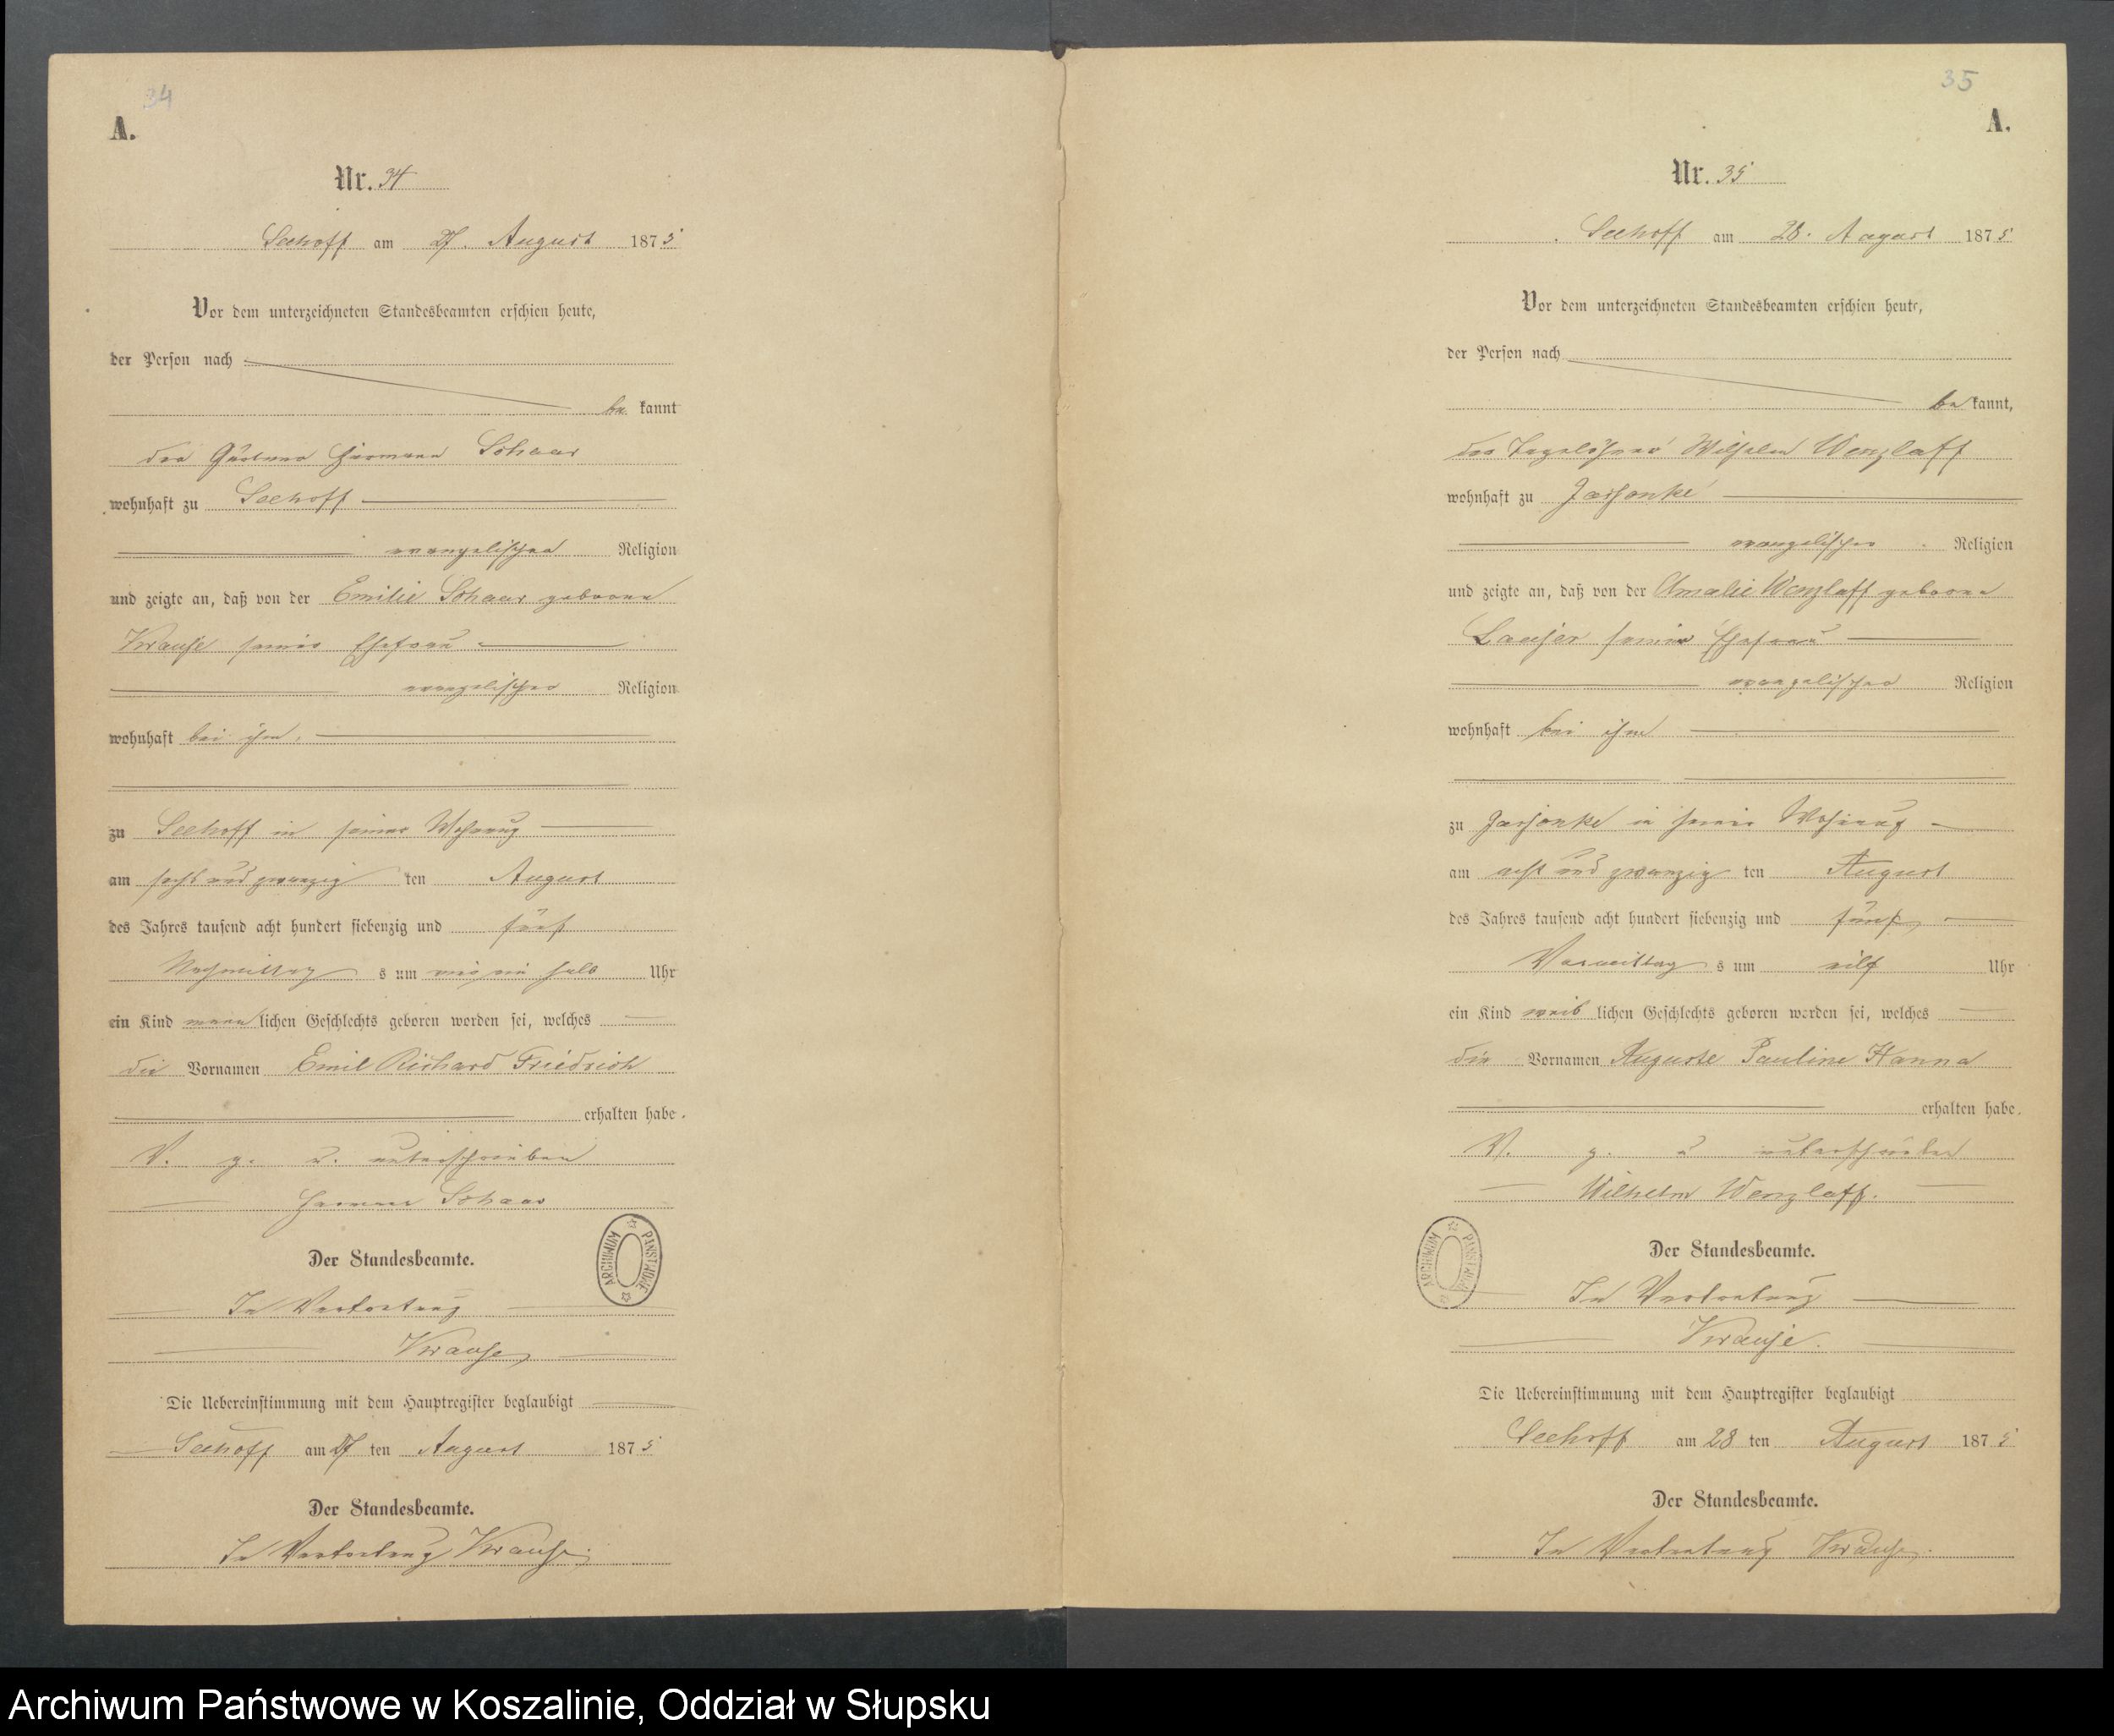 34
A.
Nr. 34
Seehoff am 27. August 1875
Vor dem unterzeichneten Standesbeamten erschien heute,
der Person nach
be kannt
der Gärtner Hermann Schaar
wohnhaft zu Seehoff
evangelischer Religion
und zeigte an, daß von der Emilie Schaar geborene
Krause seiner Ehefrau
evangelischer Religion
wohnhaft bei ihm,
zu Seehoff in seiner Wohnung
am sechs und zwanzig ten August
des Jahres tausend acht hundert siebenzig und fünf
Nachmittag s um ein halb Uhr
ein Kind männ lichen Geschlechts geboren worden sei, welches
die Vornamen Emil Richard Friedrich
erhalten habe.
V. g. u. unterschrieben
Herman Schaar
Der Standesbeamte.
In Vertretung
Krause
Die Uebereinstimmung mit dem Hauptregister beglaubigt
Seehoff am 27 ten August 1875
Der Standesbeamte.
In Vertretung Krause
ARCHIWUM PAŃSTWOWE
35
A.
Nr. 35
Seehoff am 28. August 1875
Vor dem unterzeichneten Standesbeamten erschien heute,
der Person nach
be kannt,
der Tagelöhner Wilhelm Wenzlaff
wohnhaft zu
evangelischer Religion
und zeigte an, daß von der Amalie Wenzlaff geborene
seiner Ehefrau
evangelischer Religion
wohnhaft bei ihm
zu in seiner Wohnung
am acht und zwanzig ten August
des Jahres tausend acht hundert siebenzig und fünf,
Vormittag s um elf Uhr
ein Kind weib lichen Geschlechts geboren worden sei, welches
die Vornamen Auguste Pauline Hanna
erhalten habe.
V. g. u unterschrieben
Wilhelm Wenzlaff.
Der Standesbeamte.
In Vertretung
Krause.
Die Uebereinstimmung mit dem Hauptregister beglaubigt
Seehoff am 28 ten August 1875
Der Standesbeamte.
In Vertretung Krause.
ARCHIWUM PAŃSTWOWE
Archiwum Państwowe w Koszalinie, Oddział w Słupsku